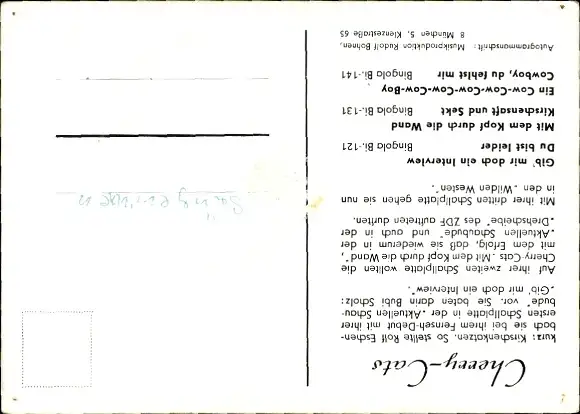 Cherry-Cats
kurz: Kirschenkatzen. So stellte Rolf Eschen-
bach sie bei ihrem Fernseh-Debut mit ihrer
ersten Schallplatte in der „Aktuellen Schau-
bude" vor. Sie baten darin Bubi Scholz:
„Gib' mir doch ein Interview".
Auf ihrer zweiten Schallplatte wollten die
Cherry-Cats „Mit dem Kopf durch die Wand",
mit dem Erfolg, daß sie wiederum in der
„Aktuellen Schaubude" und auch in der
„Drehscheibe" des ZDF auftreten durften.
Mit ihrer dritten Schallplatte gehen sie nun
in den „Wilden Westen".
Gib' mir ein doch Interview
Du bist leider Bingola Bi.-121
Mit dem Kopf durch die Wand
Kirschensaft und Sekt Bingola Bi.-131
Ein Cow-Cow-Cow-Cow-Cow-Boy
Cowboy, du fehlst mir Bingola Bi.-141
Autogrammanschrift: Musikproduktion Rudolf Bohnen,
8 München 5, Klenzestraße 65